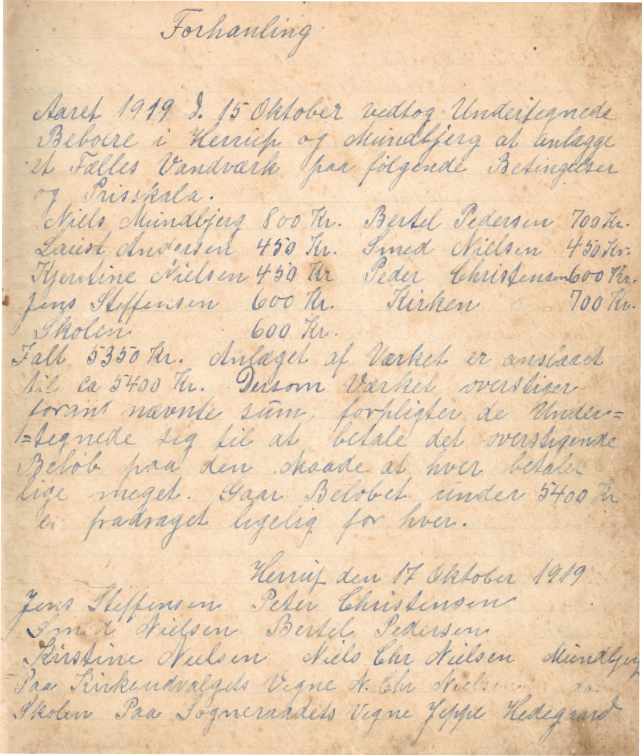 Forhanling
Aaret 1919 d. 15 Oktober vedtog Undertegnede
Beboere i Herrup og Mundbjerg at anlægge
et Fælles Vandværk paa følgende Betingelser
og Prisskala.
Niels Mundbjerg 800 Kr. Bertel Pedersen 700 Kr.
Laust Andersen 450 Kr. Smed Nielsen 450 Kr.
Kjerstine Nielsen 450 Kr Peder Christensen 600 Kr.
Jens Steffensen 600 Kr. Kirken 700 Kr.
Skolen 600 Kr.
Ialt 5350 Kr. Anlæget af Værket er anslaaet
til ca 5400 Kr. Dersom Værket overstiger
forant nævnte sum, forpligter de Under=
=tegnede sig til at betale det overstigende
Beløb paa den Maade at hver betaler
lige meget. Gaar Beløbet under 5400 Kr
fradraget ligelig for hver.
Herrup den 17 Oktober 1919
Jens Steffensen Peter Christensen
Smed Nielsen Bertel Pedersen
Kirstine Nielsen Niels Chr Nielsen Mundbjerg
Paa Kirkeudvalgets Vegne N. Chr Nielsen do.
Skolen Paa Sogneraadets Vegne Jeppe Hedegaard